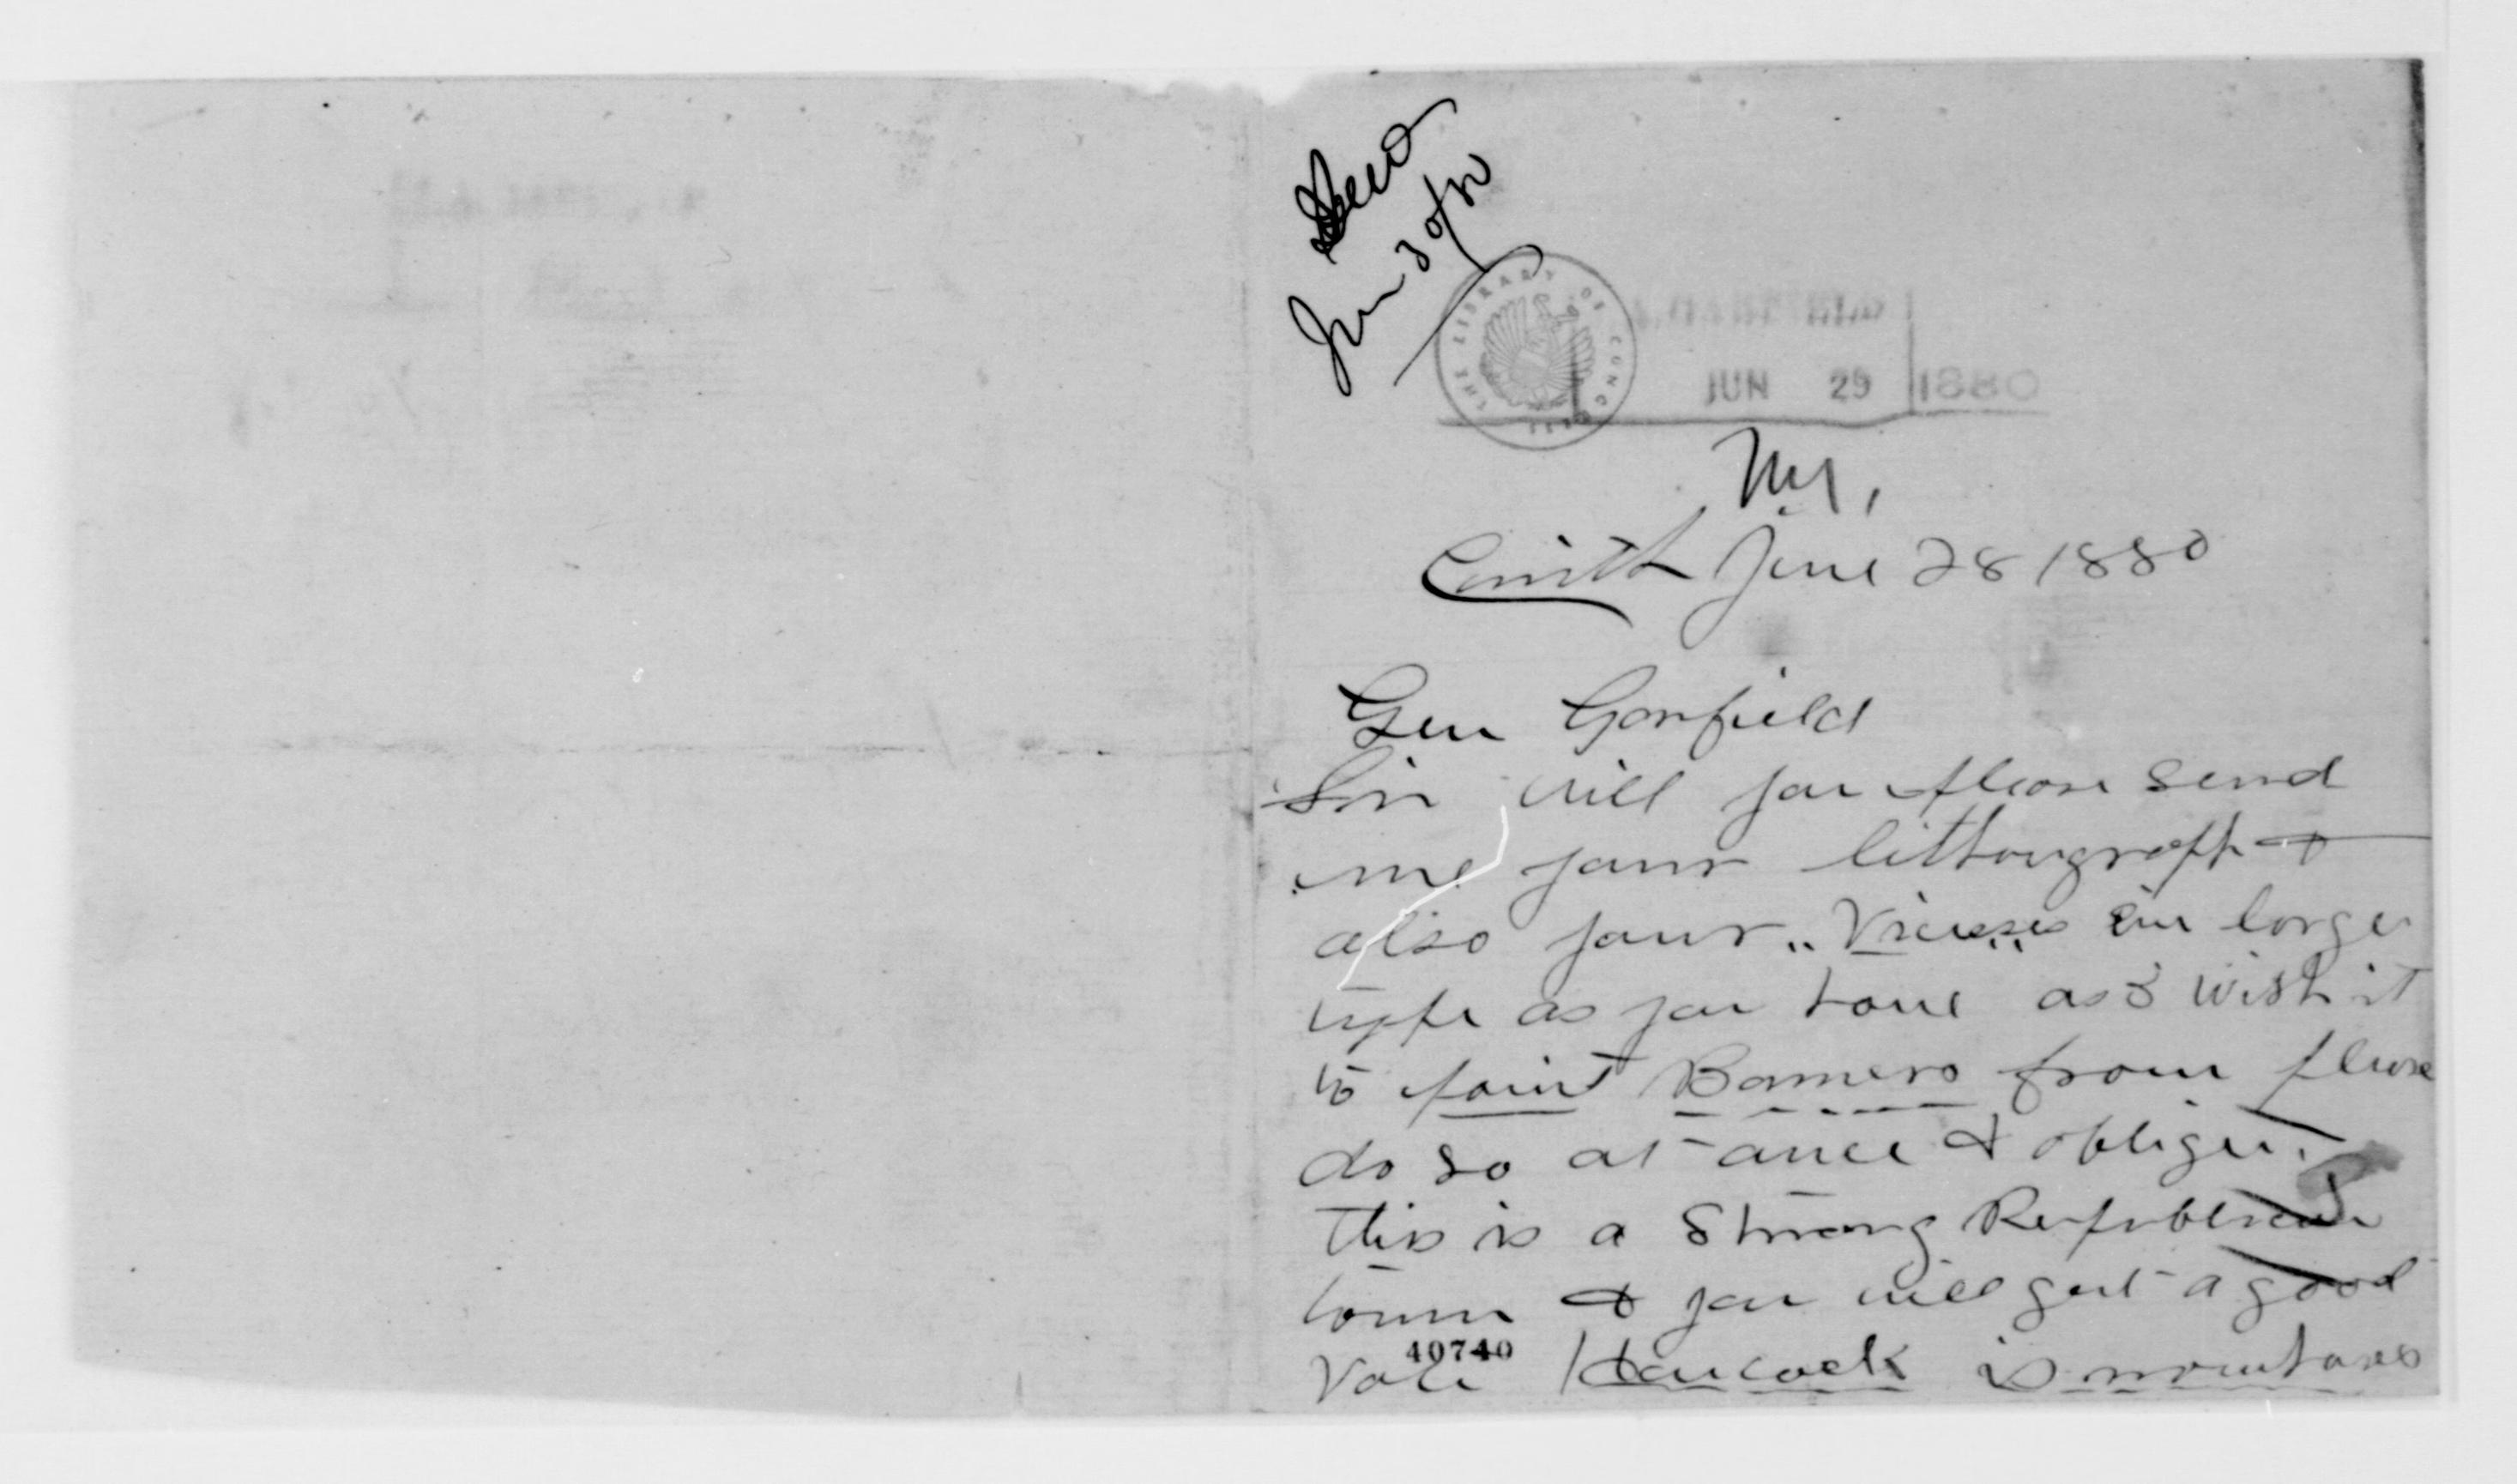 Jun 30/80
THE LIBRARY OF CONGRESS
J. A. GARFIELD
JUN 29 1880
N.Y.,
June 28 1880
Gen Garfield
Sir will you please send
me your lithougraph &
also your "Viewes" in large
type as you have as I wish it
to paint Banners from please
do so at once & oblige.
This is a Strong Republican
town & you will get a good
40740
Vote Hancock is